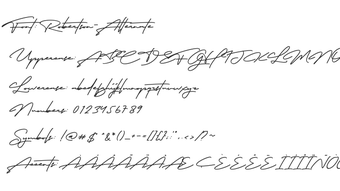 Font Robertson-Alternate
Uppercase ABCDEFGHIJKLMNO
Lowercase abcdefghijklmnopqrstuvwxyz
Numbers 0123456789
Symbols !@#$^&*()_+-={}[]:;",.<>/?~
Accents ÀÁÂÃÄÅÆÇÈÉÊËÌÍÎÏÑÒ